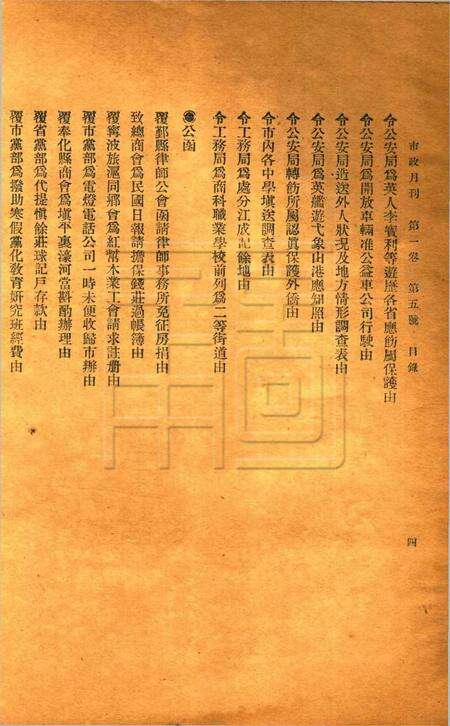 市政月刊　第一卷　第五號　目錄
四
令公安局爲英人李賓利等遊歷各省應飭屬保護由
令公安局爲開放車輛准公益車公司行駛由
令公安局造送外人狀况及地方情形調查表由
令公安局爲英艦遊弋象山港應知照由
令公安局轉飭所屬認眞保護外僑由
令市內各中學塡送調查表由
令工務局爲處分江成記餘地由
令工務局爲商科職業學校前列爲二等街道由
公函
覆鄞縣律師公會函請律師事務所免征房捐由
致總商會爲民國日報請擔保錢莊過帳簿由
覆寗波旅滬同鄉會爲紅幫木業工會請求註册由
覆市黨部爲電燈電話公司一時未便收歸市辦由
覆奉化縣商會爲塡平裏濠河當斟酌辦理由
覆省黨部爲代提愼餘莊球記戶存款由
覆市黨部爲撥助寒假黨化敎育姸究班經費由